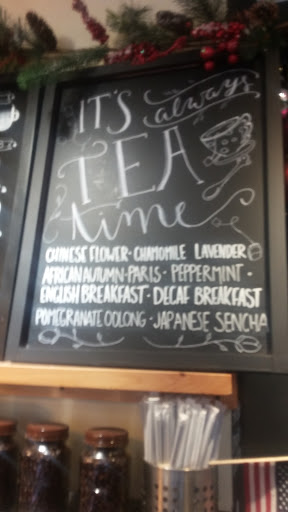 IT'S always
TEA
time
CHINESE FLOWER · CHAMOMILE LAVENDER
AFRICAN AUTUMN · PARIS · PEPPERMINT ·
ENGLISH BREAKFAST · DECAF BREAKFAST
POMEGRANATE OOLONG · JAPANESE SENCHA